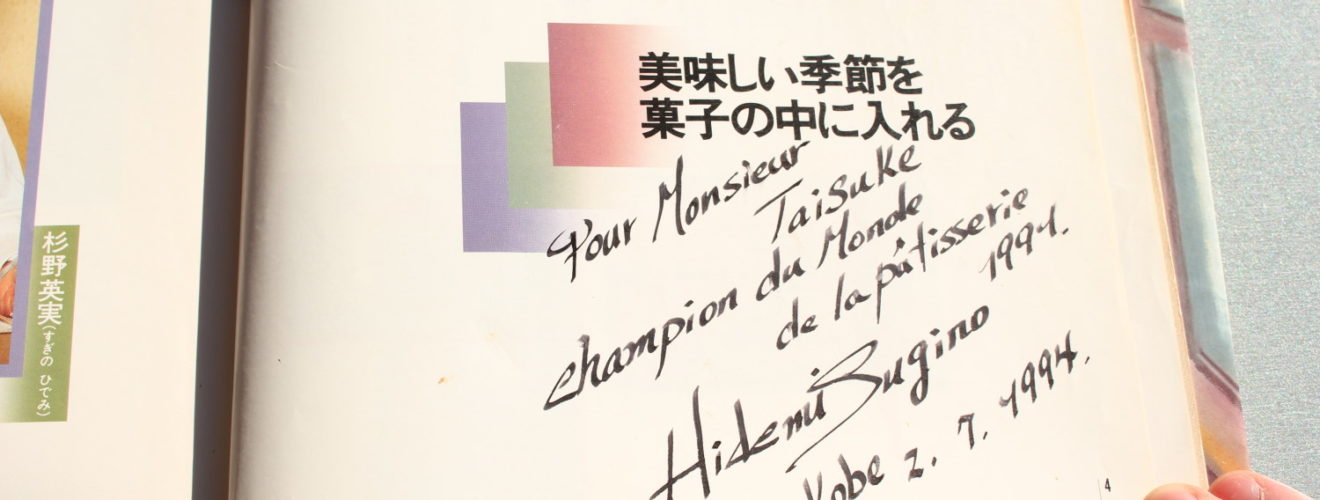 美味しい季節を
菓子の中に入れる
Pour Monsieur
Taisuke
champion du Monde
de la pâtisserie
1991.
Hidemi Sugino
Kobe 2. 7. 1994.
杉野英実(すぎの ひでみ)
4